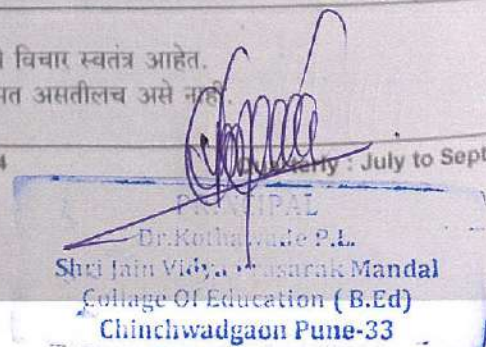 विचार स्वतंत्र आहेत.
असतीलच असे नाही.
4
Quarterly : July to Sept
PRINCIPAL
Dr.Kothawade P.L.
Shri Jain Vidya Prasarak Mandal
Collage Of Education ( B.Ed)
Chinchwadgaon Pune-33